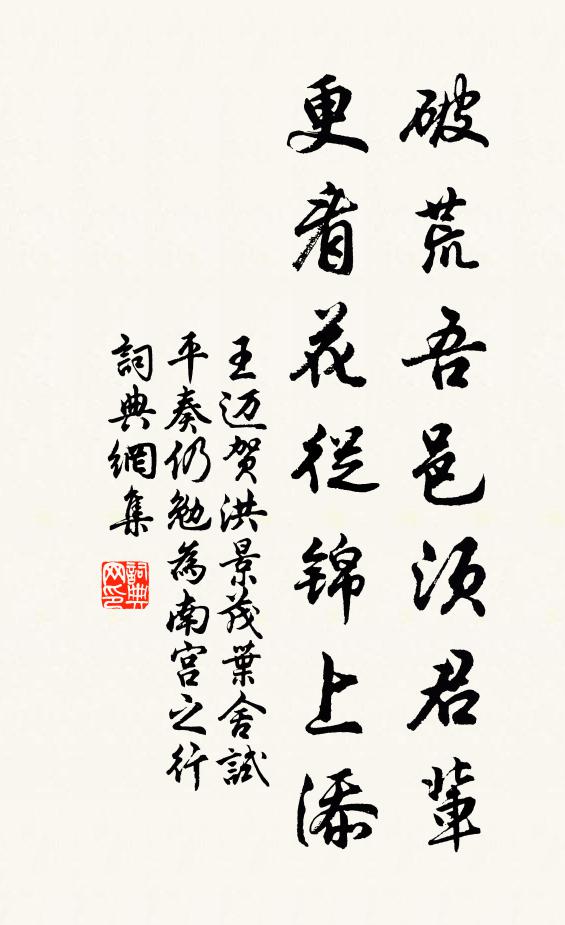 破荒吾邑須君輩
更看花從錦上添
王迈賀洪景茂葉舍試
平奏仍勉為南宫之行
詞典網集
詞典
网印